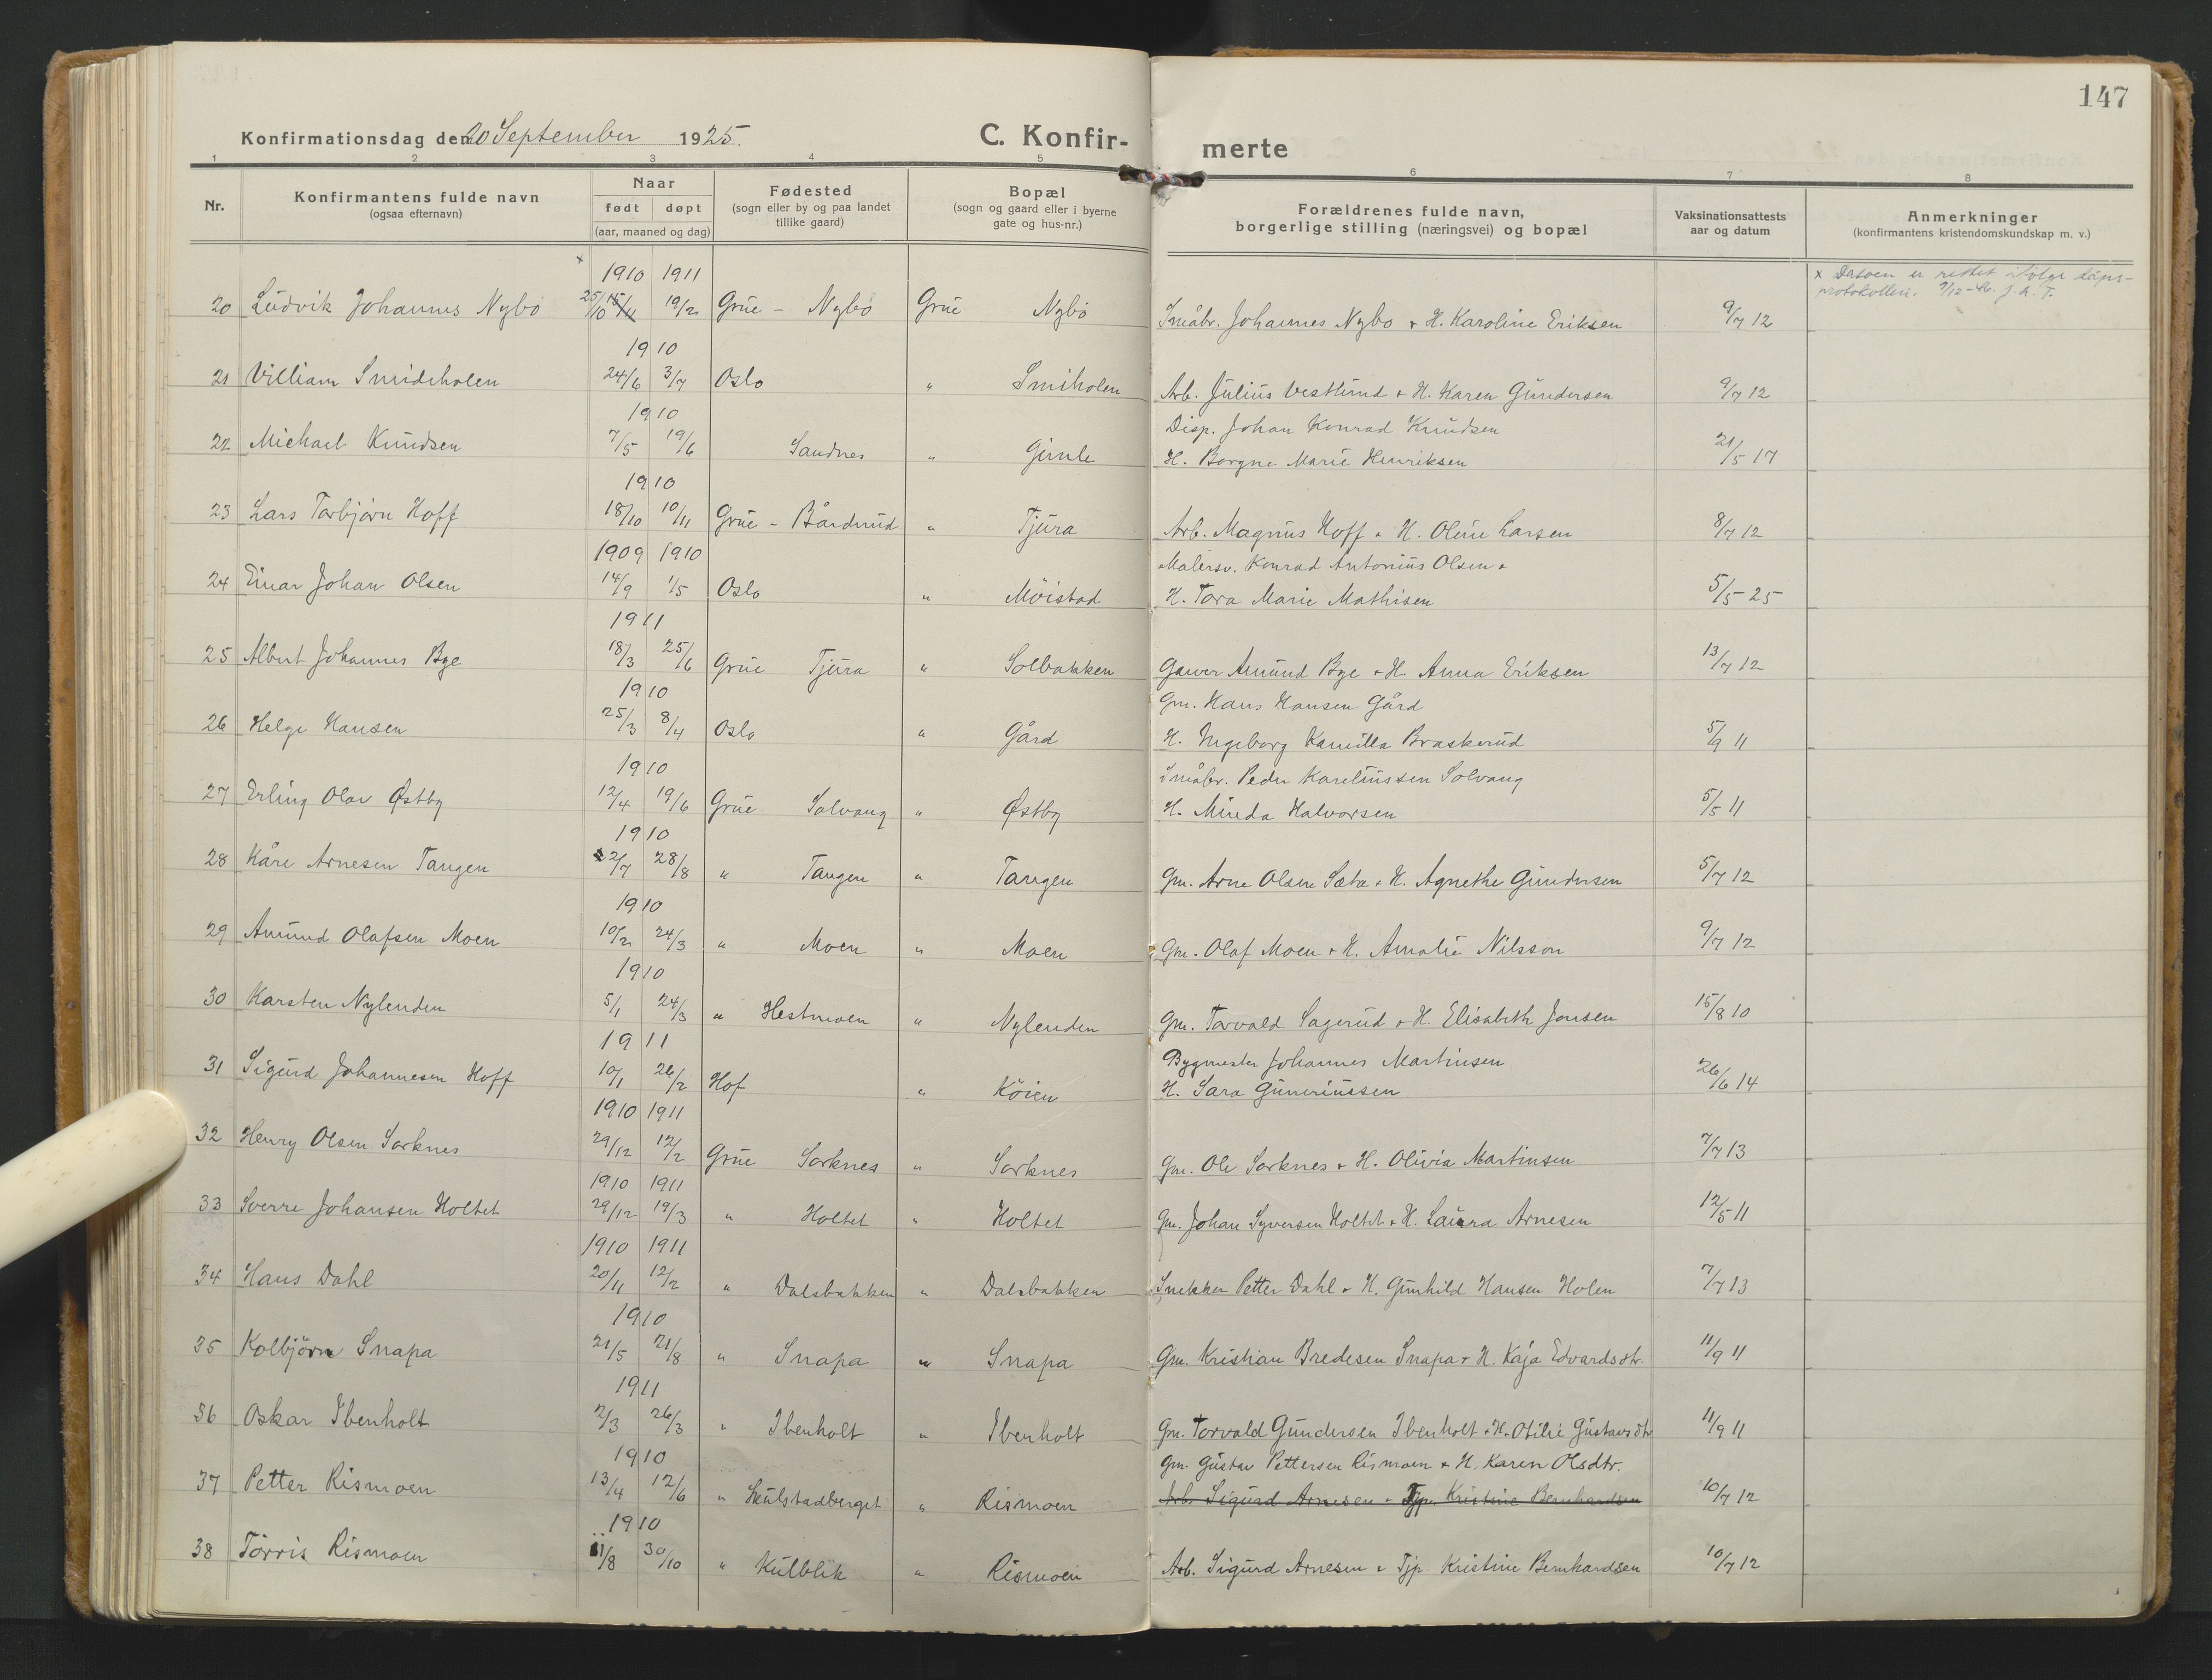 147
Konfirmationsdag den 20 September 1925.
C. Konfir- merte
1 2 3 4 5 6 7 8
Nr.
Konfirmantens fulde navn
(ogsaa efternavn)
Naar
født døpt
(aar, maaned og dag)
Fødested
(sogn eller by og paa landet
tillike gaard)
Bopæl
(sogn og gaard eller i byerne
gate og hus-nr.)
Forældrenes fulde navn,
borgerlige stilling (næringsvei) og bopæl
Vaksinationsattests
aar og datum
Anmerkninger
(konfirmantens kristendomskundskap m. v.)
x 1910 1911 x Datoen er rettet ifølge dåps-
protokollen. 9/12-46. J. A. T.
20 Ludvik Johannes Nybo 25/10 15/11 19/2 Grue - Nybo Grue Nybo Småbr. Johannes Nybo + H. Karoline Eriksen 9/7 12
1910
21 Villiam Smideholen 24/6 3/7 Oslo " Smiholen Arb. Julius Vestlund + H. Karen Gundersen 9/7 12
1910 Disp. Johan Konrad Knudsen
22 Michael Knudsen 7/5 19/6 Sandnes " Gimle H. Borgne Marie Henriksen 21/5 17
1910
23 Lars Torbjørn Hoff 18/10 10/11 Grue - Bårdrud " Tjura Arb. Magnus Hoff + H. Oline Larsen 8/7 12
1909 1910 Malersv. Konrad Antonius Olsen +
24 Einar Johan Olsen 14/9 1/5 Oslo " Möistad H. Tora Marie Mathisen 5/5-25
1911
25 Albert Johannes Bye 18/3 25/6 Grue Tjura " Solbakken Garver Amund Bye + H. Anna Eriksen 13/7 12
1910 Gm. Hans Hansen Gård
26 Helge Hansen 25/3 8/4 Oslo " Gård H. Ingeborg Kamilla Braskerud 5/9 11
1910 Småbr. Peder Kareliussen Solvang
27 Erling Olav Østby 12/4 19/6 Grue Solvang " Østby H. Minda Halvorsen 5/5 11
1910
28 Kåre Arnesen Tangen 22/7 28/8 " Tangen " Tangen Gm. Arne Olsen Sæta + H. Agnethe Gundersen 5/7 12
1910
29 Amund Olafsen Moen 10/2 24/3 " Moen " Moen Gm. Olaf Moen + H. Amalie Nilsson 9/7 12
1910
30 Karsten Nylenden 5/1 24/3 " Hestmoen " Nylenden Gm. Torvald Sagerud + H. Elisabeth Jonsen 15/8 10
1911 Bygmester Johannes Martinsen
31 Sigurd Johannesen Hoff 10/1 26/2 Hof " Köien H. Sara Gunerinssen 26/6 14
1910 1911
32 Henry Olsen Sorknes 29/12 12/2 Grue Sorknes " Sorknes Gm. Ole Sorknes + H. Olivia Martinsen 7/7 13
1910 1911
33 Sverre Johansen Holtet 29/12 19/3 " Holtet " Holtet Gm. Johan Syversen Holtet + H. Laura Arnesen 12/5 11
1910 1911
34 Hans Dahl 20/11 12/2 " Dalsbakken " Dalsbakken Snekker Petter Dahl + H. Gunhild Hansen Holen 7/7 13
1910
35 Kolbjørn Snapa 21/5 21/8 " Snapa " Snapa Gm. Kristian Bredesen Snapa + H. Kaja Edvardsdtr. 11/9 11
1911
36 Oskar Ibenholt 2/3 26/3 " Ibenholt " Ibenholt Gm. Torvald Gundersen Ibenholt + H. Otilie Gustavsdtr 11/9 11
1910 Gm. Gustav Pettersen Rismoen + H. Karen Olsdtr.
37 Petter Rismoen 13/4 12/6 " Skulstadberget " Rismoen Arb. Sigurd Arnesen + Tjp. Kristine Bernhardsen 10/7 12
1910
38 Torris Rismoen 11/8 30/10 " Kulblik " Rismoen Arb. Sigurd Arnesen + Tjp. Kristine Bernhardsen 10/7 12